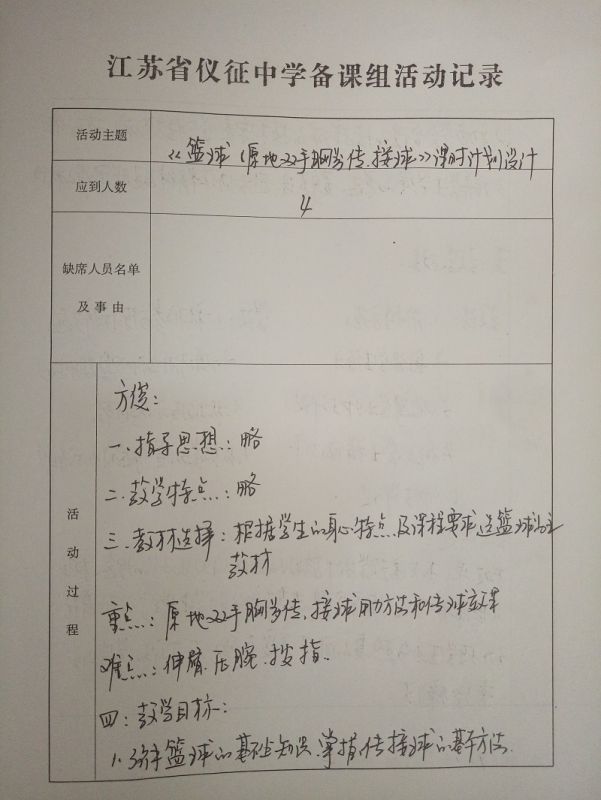 江苏省仪征中学备课组活动记录
活动主题
《篮球(原地双手胸前传、接球》课时计划设计
应到人数
4
缺席人员名单
及事由
活动过程
一.指导思想:略
二.教学特点:略
三.教材选择:根据学生的身心特点及课程要求选篮球为主
教材
重点:原地双手胸前传、接球用力方法和传球效果
难点:伸臂.压腕.拨指.
四:教学目标:
1.篮球的基础知识,掌握传接球的基本方法.